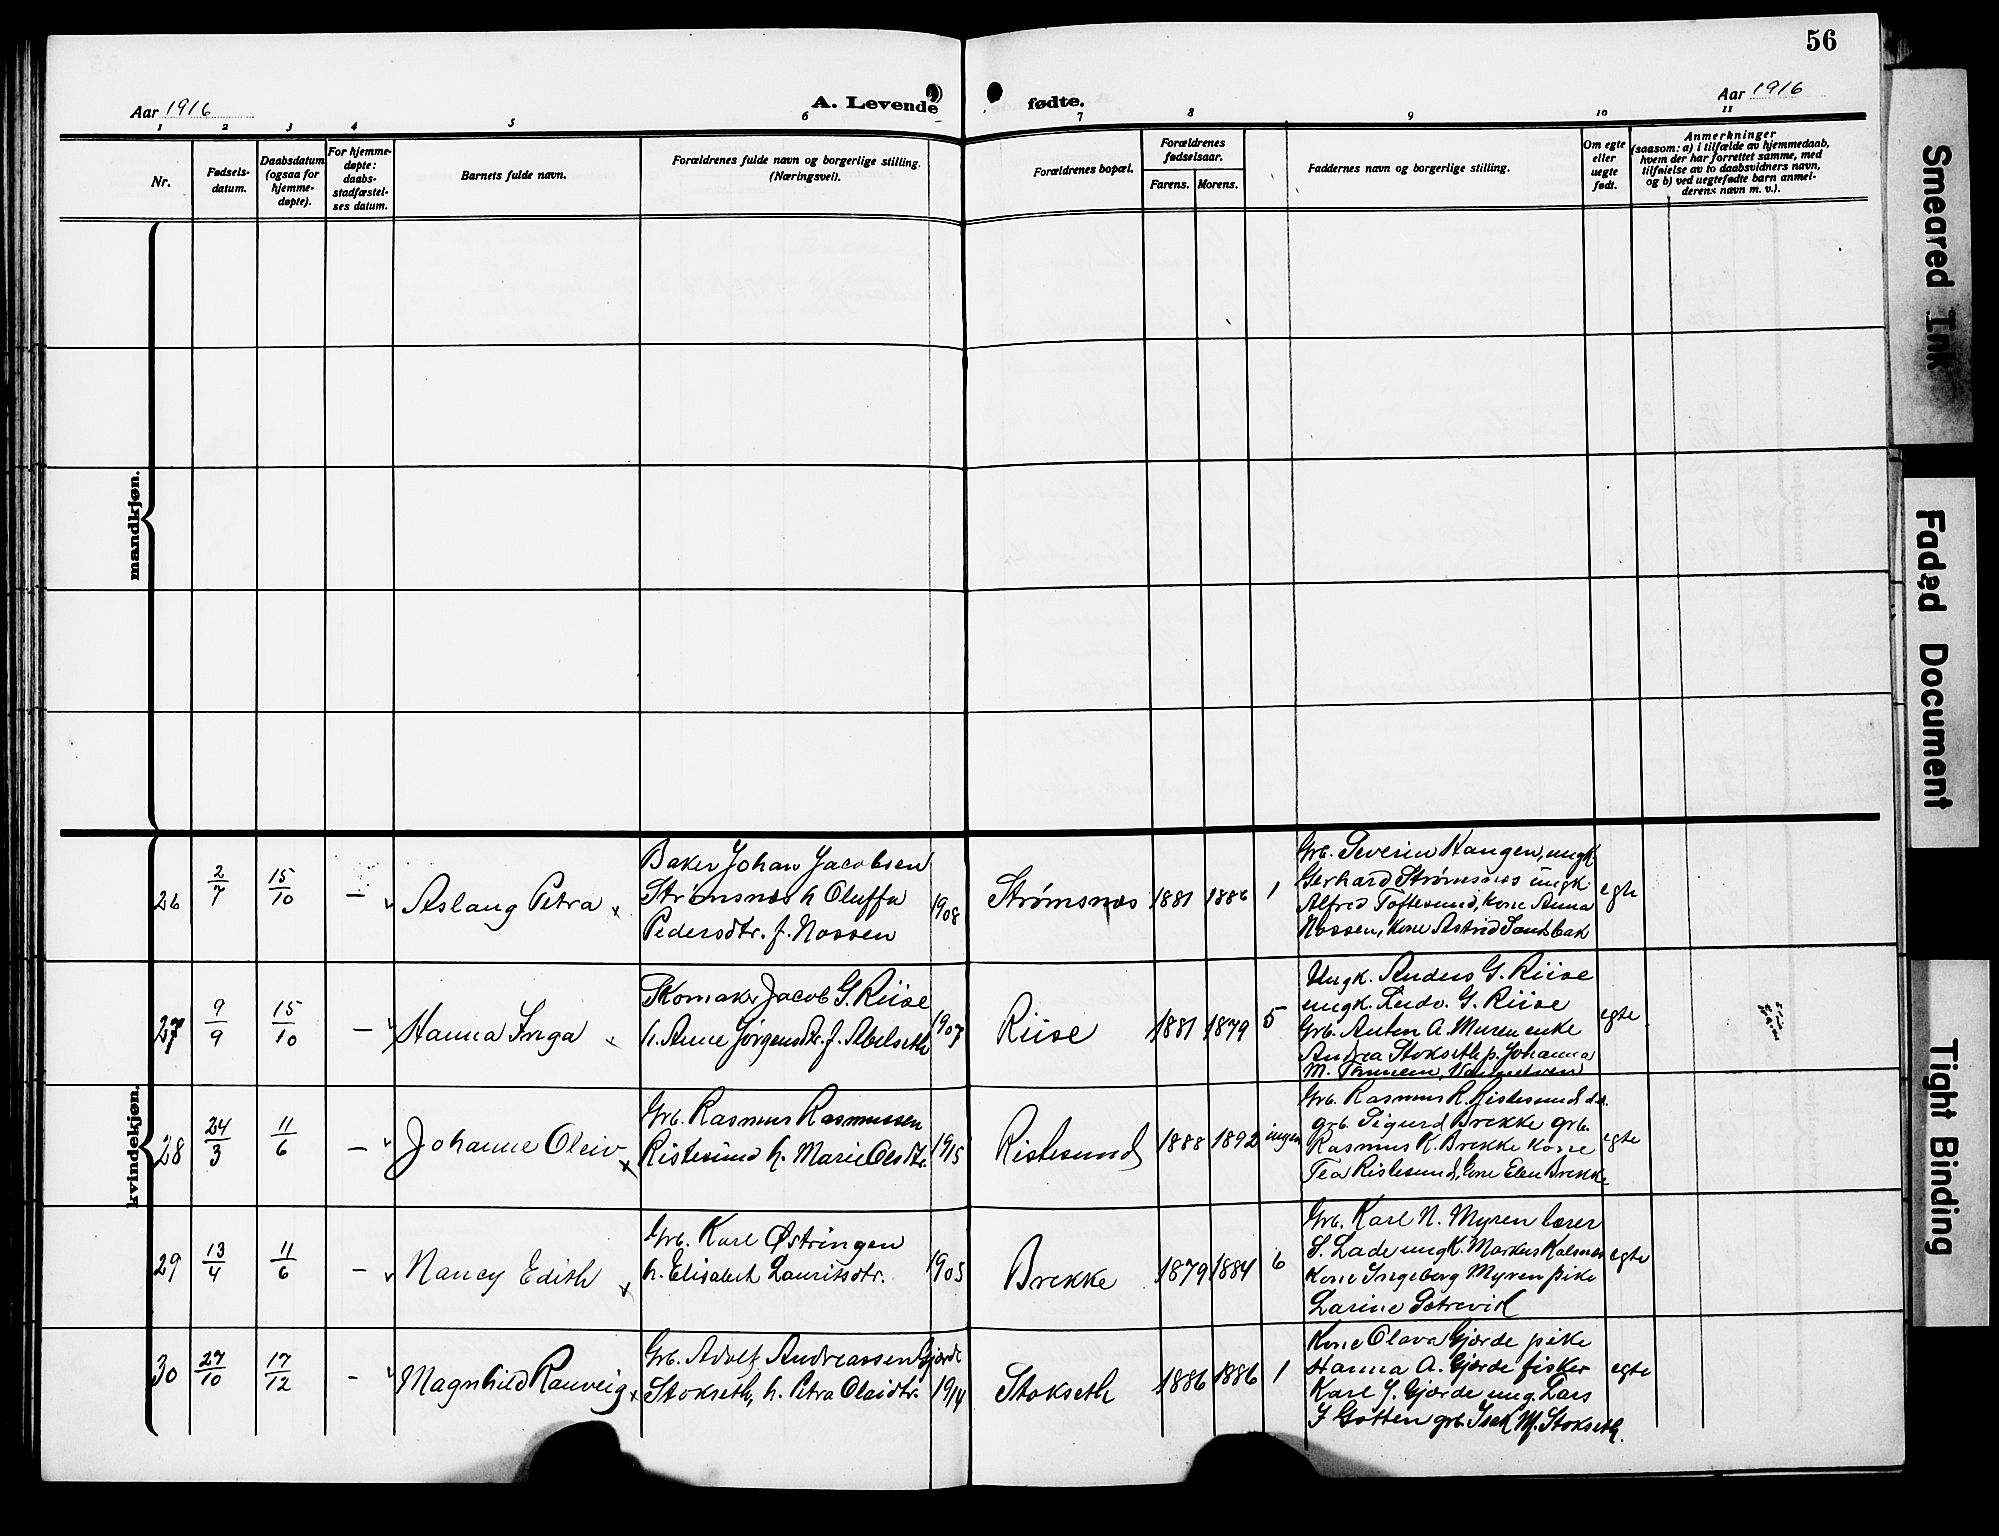 56
Aar 1916
A. Levende
fødte.
Aar 1916
1 2 3 4 5 6 7 8 9 10 11
Nr.
Fødsels-
datum.
Daabsdatum
(ogsaa for
hjemme-
døpte).
For hjemme-
døpte:
daabs-
stadfæstel-
ses datum.
Barnets fulde navn.
Forældrenes fulde navn og borgerlige stilling.
(Næringsvei).
Forældrenes bopæl.
Forældrenes
fødselsaar.
Farens. Morens.
Faddernes navn og borgerlige stilling.
Om egte
eller
uegte
født.
Anmerkninger
(saasom: a) i tilfælde av hjemmedaab,
hvem der har forrettet samme, med
tilføielse av to daabsvidners navn,
og b) ved uegtefødte barn anmel-
derens navn m. v.).
mandkjøn.
kvindekjøn.
26 2/7 15/10 — Aslaug Petra
Baker Johan Jacobsen
Strømsnæs h Oluffa
Pedersdtr. f. Nossen
1908
Strømsnæs 1881 1886 1
Grb. Severin Kangen, ungk.
Gerhard Strømsnæs ungk.
Alfred Toftesund, kone Anna
Nossen, kone Astrid Sandbak
egte
27 9/9 15/10 — Hanna Inga
Skomaker Jacob G. Riise
h. Anne Jørgensdtr. f. Abelseth
1907
Riise 1881 1879 5
Ungk. Anders G. Riise
ungk. Ludv. G. Riise
Grb. Anton A. Muren enke
Andrea Stokseth p. Johanna
M.
egte
28 24/3 11/6 — Johanne Oleiv
Grb. Rasmus Rasmussen
Ristesund h. Marie Olsdtr.
1915
Ristesund 1888 1892 ingen
Grb. Rasmus R. Ristesund
grb. Sigurd Brekke grb.
Rasmus K. Brekke kone
Tea Ristesund, kone Elen Brekke
egte
29 13/4 11/6 — Nancy Edith
Grb. Karl Østringen
h. Elisabet Lauritsdtr.
1905
Brekke 1879 1884 6
Grb. Karl N. Myren lærer
S. Lade ungk. Markus Kalsnes
Kone Ingeborg Myren pike
Larine Sætrevik
egte
30 27/10 17/12 - Magnhild Rauveig
Grb. Adolf Andreassen Gjærde
Stokseth, h. Petra Olaidtr.
1914
Stokseth 1886 1886 1
Kone Olava Gjærde pike
Hanna A. Gjærde fisker
Karl J. Gjærde ung. Lars
J Gotten grb. Isak M. Stokseth.
egte
Smeared Ink
Faded Document
Tight Binding